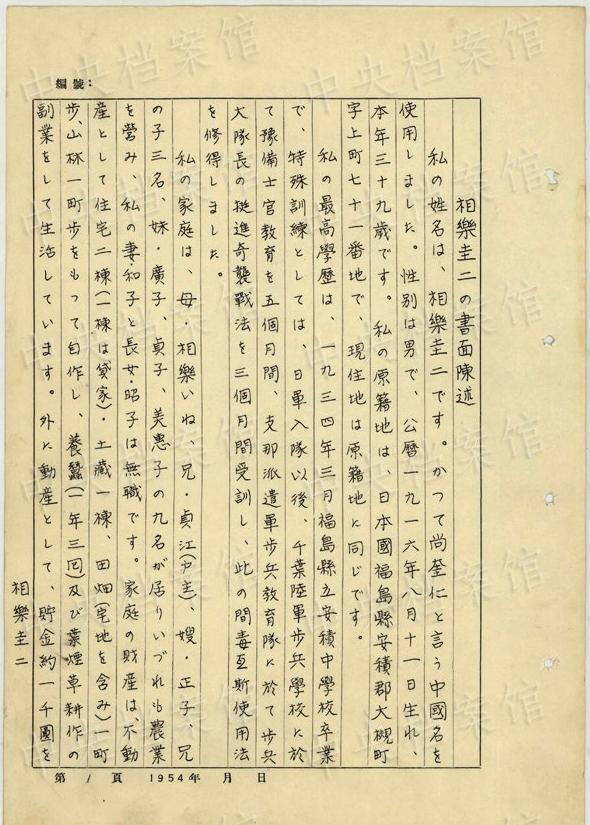 編號：
相樂圭二の書面陳述
私の姓名は、相樂圭二です。かつて尚奎仁と言う中國名を
使用しました。性別は男で、公曆一九一六年八月十一日生れ、
本年三十九歳です。私の原籍地は、日本國福島縣安積郡大槻町
字上町七十一番地で、現住地は原籍地に同じです。
私の最高學歷は、一九三四年三月福島縣立安積中學校卒業
で、特殊訓練としては、日軍入隊以後、千葉陸軍步兵學校に於
て豫備士官教育を五個月間、支那派遣軍步兵教育隊に於て步兵
大隊長の挺進奇襲戰法を三個月間受訓し、此の間毒瓦斯使用法
を修得しました。
私の家庭は、母・相樂いね、兄・貞江(戶主)、嫂・正子、兄
の子三名、妹・廣子、貞子、美惠子の九名が居りいづれも農業
を營み、私の妻・和子と長女・昭子は無職です。家庭の財産は、不動
産として住宅二棟(一棟は貸家)・土藏一棟、田畑(宅地を含み)一町
步、山林一町步をもつて自作し、養蠶(一年三囘)及び葉煙草耕作の
副業をして生活しています。外に動産として、貯金約一千圓を
相樂圭二
第 1 頁 1954年 月 日
中央档案馆